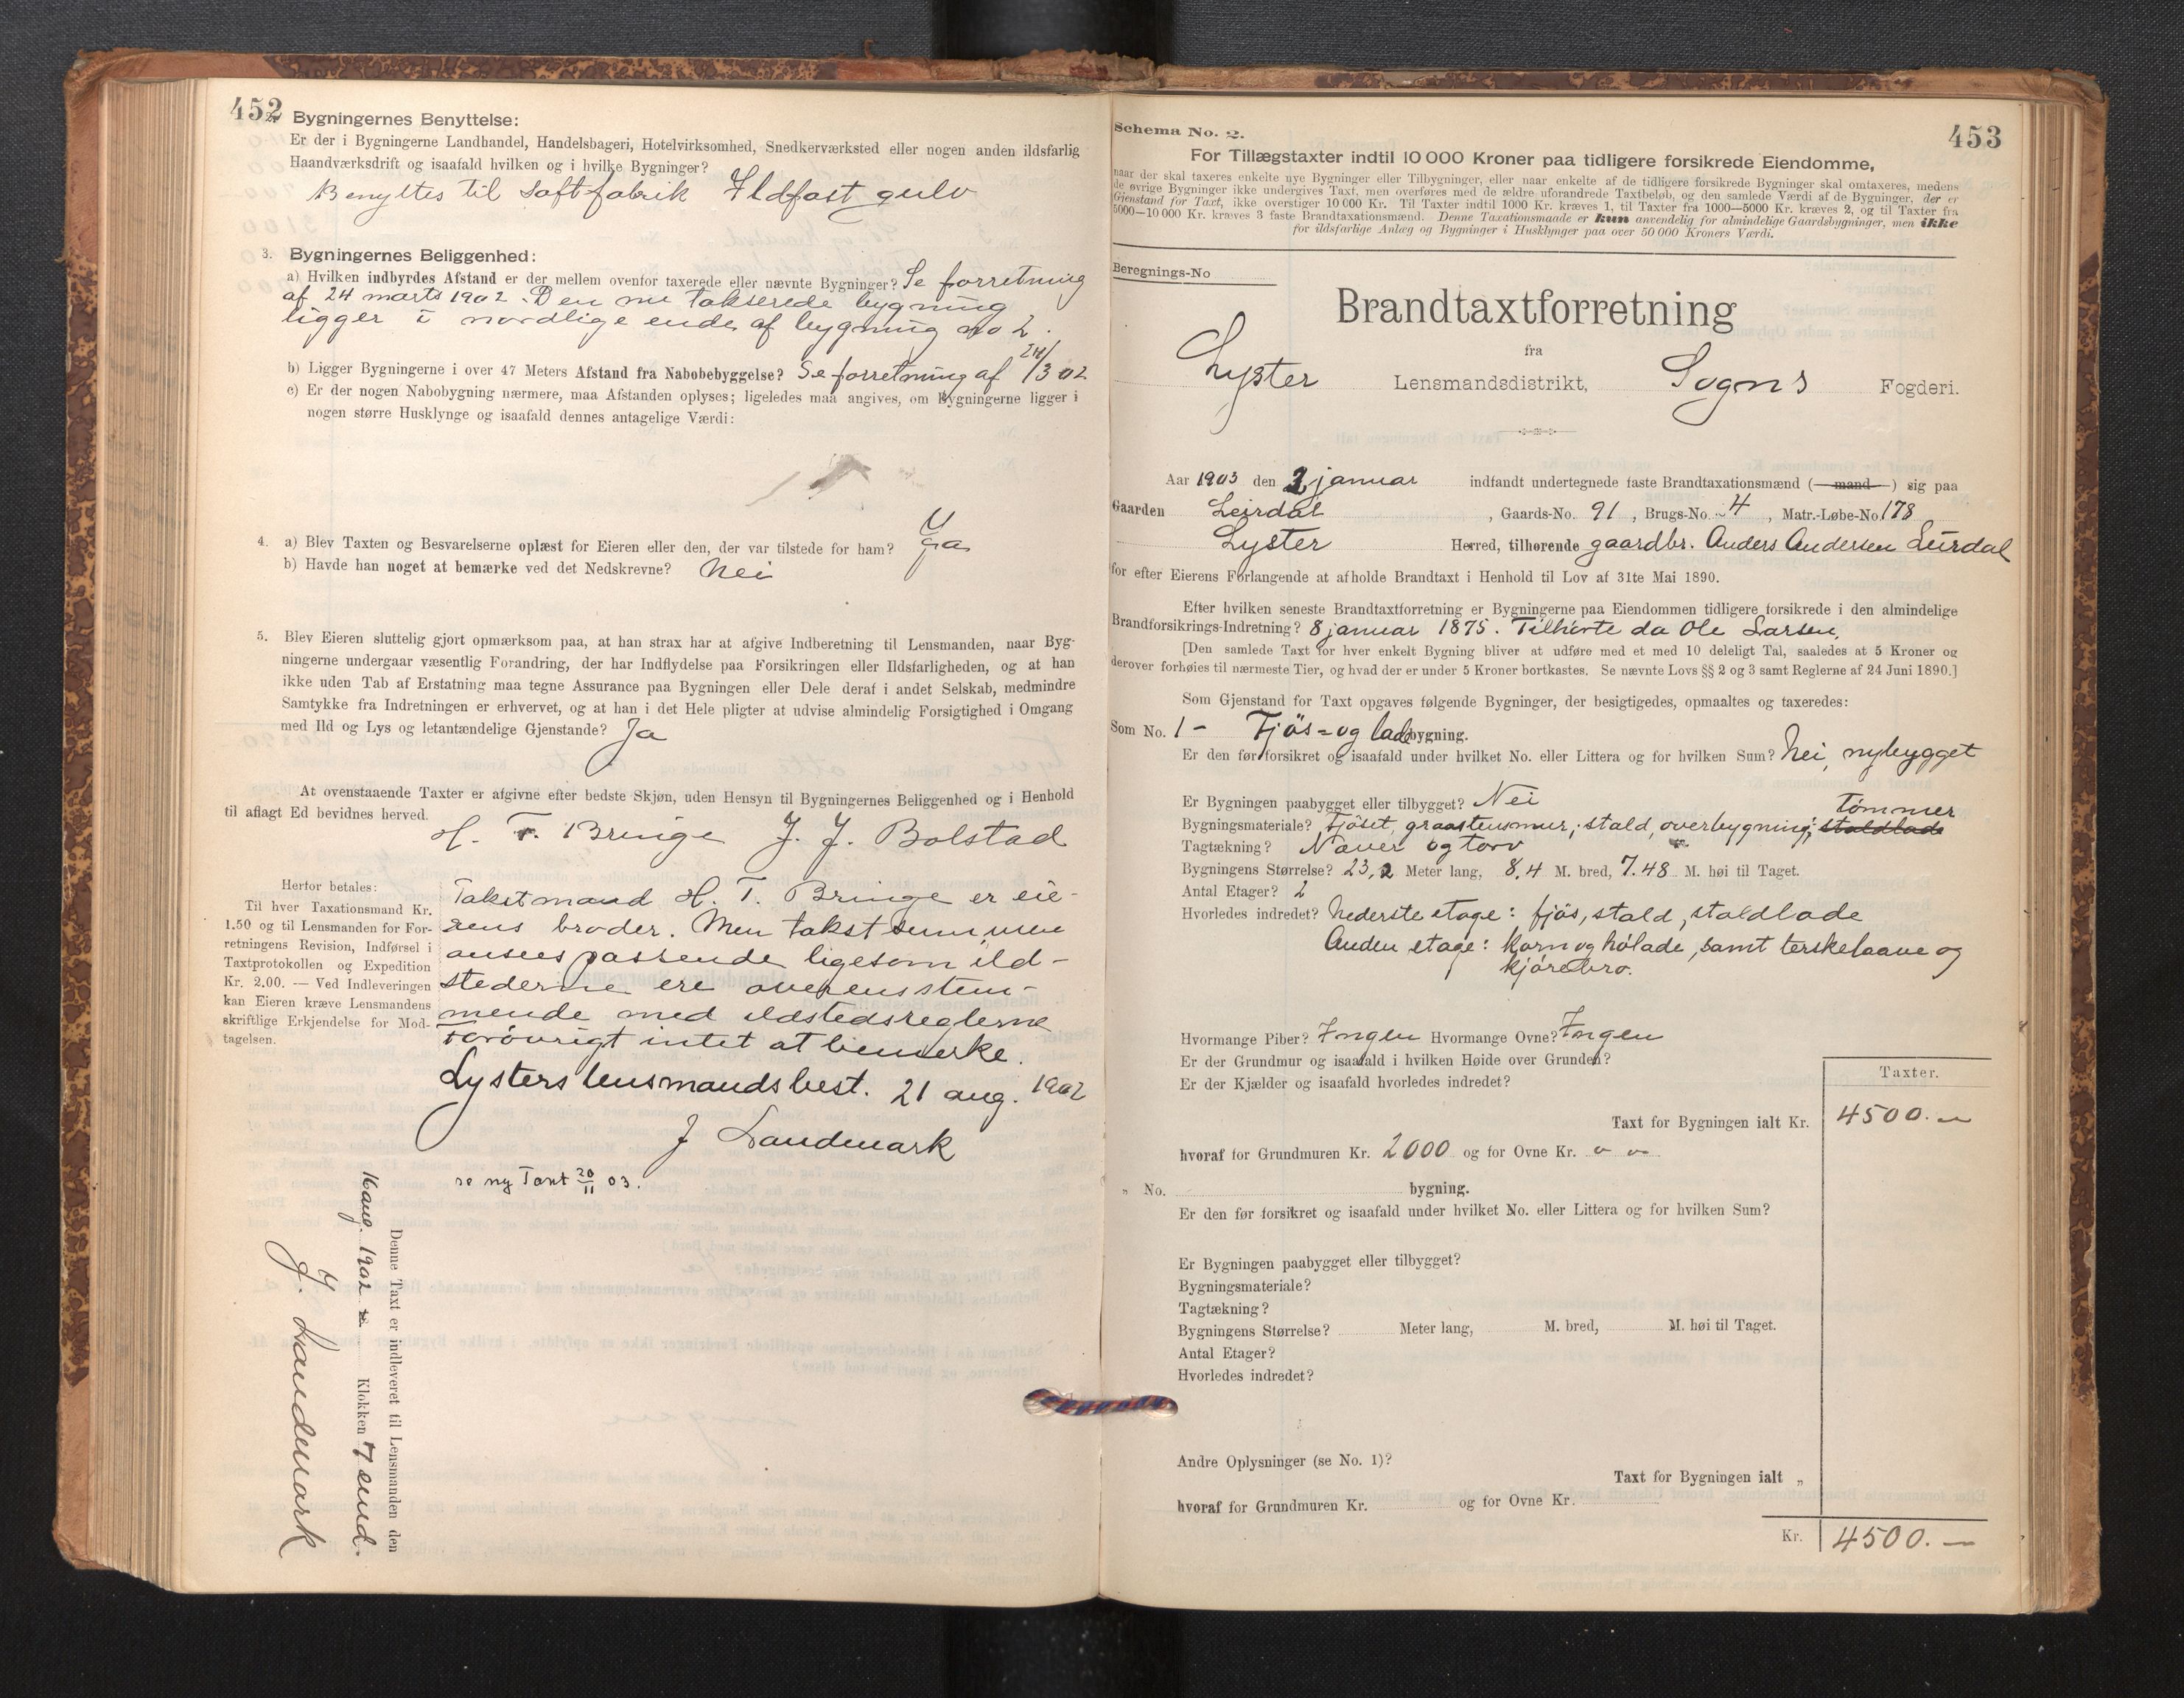 452
2. Bygningernes Benyttelse:
Er der i Bygningerne Landhandel, Handelsbageri, Hotelvirksomhed, Snedkerværksted eller nogen anden ildsfarlig
Haandværksdrift og isaafald hvilken og i hvilke Bygninger?
Benyttes til saftfabrik Ildfast gulv
3. Bygningernes Beliggenhed:
a) Hvilken indbyrdes Afstand er der mellem ovenfor taxerede eller nævnte Bygninger? Se forretning
af 24 marts 1902. Den nu takserede bygning
ligger i nordlige ende af bygning no 2.
b) Ligger Bygningerne i over 47 Meters Afstand fra Nabobebyggelse? Se forretning af 24/3 02
c) Er der nogen Nabobygning nærmere, maa Afstanden oplyses; ligeledes maa angives, om Bygningerne ligger i
nogen større Husklynge og isaafald dennes antagelige Værdi:
4. a) Blev Taxten og Besvarelserne oplæst for Eieren eller den, der var tilstede for ham? Ja
b) Havde han noget at bemærke ved det Nedskrevne? Nei
5. Blev Eieren sluttelig gjort opmærksom paa, at han strax har at afgive Indberetning til Lensmanden, naar Byg-
ningerne undergaar væsentlig Forandring, der har Indflydelse paa Forsikringen eller Ildsfarligheden, og at han
ikke uden Tab af Erstatning maa tegne Assurance paa Bygningen eller Dele deraf i andet Selskab, medmindre
Samtykke fra Indretningen er erhvervet, og at han i det Hele pligter at udvise almindelig Forsigtighed i Omgang
med Ild og Lys og letantændelige Gjenstande? Ja
At ovenstaaende Taxter er afgivne efter bedste Skjøn, uden Hensyn til Bygningernes Beliggenhed og i Henhold
til aflagt Ed bevidnes herved.
H. T. Bringe J. J. Bolstad
Herfor betales:
Til hver Taxationsmand Kr.
1.50 og til Lensmanden for For-
retningens Revision, Indførsel i
Taxtprotokollen og Expedition
Kr. 2.00. — Ved Indleveringen
kan Eieren kræve Lensmandens
skriftlige Erkjendelse for Mod-
tagelsen.
Takstmand H. T. Bringe er eie-
rens broder. Men takstsummen
ansees passende ligesom ild-
stederne ere overensstem-
mende med ildstedsreglerne
Forøvrigt intet at bemerke.
Lysters lensmandsbest. 21 aug. 1902
J Landmark
se ny Taxt 20/11 03.
Denne Taxt er indleveret til Lensmanden den
16 aug. 1902 Klokken 7 emd.
J. Landmark
453
Schema No. 2.
For Tillægstaxter indtil 10 000 Kroner paa tidligere forsikrede Eiendomme,
naar der skal taxeres enkelte nye Bygninger eller Tilbygninger, eller naar enkelte af de tidligere forsikrede Bygninger skal omtaxeres, medens
de øvrige Bygninger ikke undergives Taxt, men overføres med de ældre uforandrede Taxtbeløb, og den samlede Værdi af de Bygninger, der er
Gjenstand for Taxt, ikke overstiger 10 000 Kr. Til Taxter indtil 1000 Kr. kræves 1, til Taxter fra 1000—5000 Kr. kræves 2, og til Taxter fra
5000—10 000 Kr. kræves 3 faste Brandtaxationsmænd. Denne Taxationsmaade er kun anvendelig for almindelige Gaardsbygninger, men ikke
for ildsfarlige Anlæg og Bygninger i Husklynger paa over 50 000 Kroners Værdi.
Beregnings-No
Brandtaxtforretning
fra
Lyster Lensmandsdistrikt, Sogns Fogderi.
Aar 1903 den 2 januar indfandt undertegnede faste Brandtaxationsmænd (mand) sig paa
Gaarden Leirdal, Gaards-No. 91, Brugs-No. 4, Matr.-Løbe-No 178
Lyster Herred, tilhørende gaardbr. Anders Andersen Leirdal
for efter Eierens Forlangende at afholde Brandtaxt i Henhold til Lov af 31te Mai 1890.
Efter hvilken seneste Brandtaxtforretning er Bygningerne paa Eiendommen tidligere forsikrede i den almindelige
Brandforsikrings-Indretning? 8 januar 1875. Tilhørte da Ole Larsen.
[Den samlede Taxt for hver enkelt Bygning bliver at udføre med et med 10 deleligt Tal, saaledes at 5 Kroner og
derover forhøies til nærmeste Tier, og hvad der er under 5 Kroner bortkastes. Se nævnte Lovs §§ 2 og 3 samt Reglerne af 24 Juni 1890.]
Som Gjenstand for Taxt opgaves følgende Bygninger, der besigtigedes, opmaaltes og taxeredes:
Som No. 1 - Fjøs- og ladebygning.
Er den før forsikret og isaafald under hvilket No. eller Littera og for hvilken Sum? Nei, nybygget
Er Bygningen paabygget eller tilbygget? Nei
tømmer
Bygningsmateriale? Fjøset, graastensmur; stald, overbygning, staldlade
Tagtækning? Næver og torv
Bygningens Størrelse? 23,2 Meter lang, 8,4 M. bred, 7.48 M. høi til Taget.
Antal Etager? 2
Hvorledes indredet? Nederste etage: fjøs, stald, staldlade
Anden etage: korn og hølade, samt terskelaave og
kjørebro.
Hvormange Piber? Ingen Hvormange Ovne? Ingen
Er der Grundmur og isaafald i hvilken Høide over Grunden?
Er der Kjælder og isaafald hvorledes indredet?
Taxter.
Taxt for Bygningen ialt Kr. 4500.—
hvoraf for Grundmuren Kr. 2000 og for Ovne Kr.
" No. bygning.
Er den før forsikret og isaafald under hvilket No. eller Littera og for hvilken Sum?
Er Bygningen paabygget eller tilbygget?
Bygningsmateriale?
Tagtækning?
Bygningens Størrelse? Meter lang, M. bred, M. høi til Taget.
Antal Etager?
Hvorledes indredet?
Andre Oplysninger (se No. 1)?
Taxt for Bygningen ialt "
hvoraf for Grundmuren Kr. og for Ovne Kr.
Kr. 4500.—